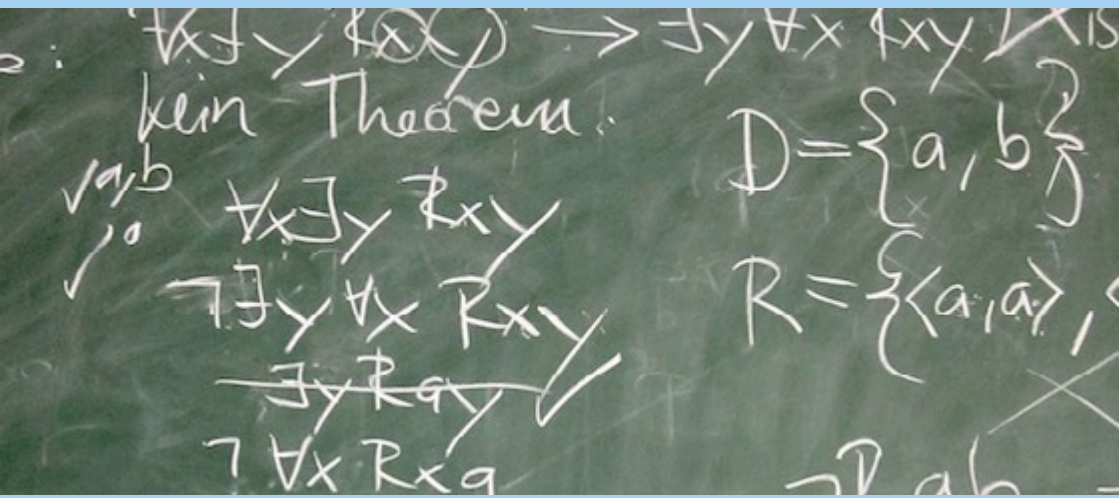 ∀x∃y Rxy → ∃y∀x Rxy
kein Theorem.
√a,b
∀x∃y Rxy
¬∃y∀x Rxy
∃y Ray
¬∀x Rxa
D={a,b}
R={<a,a>,
¬Rab